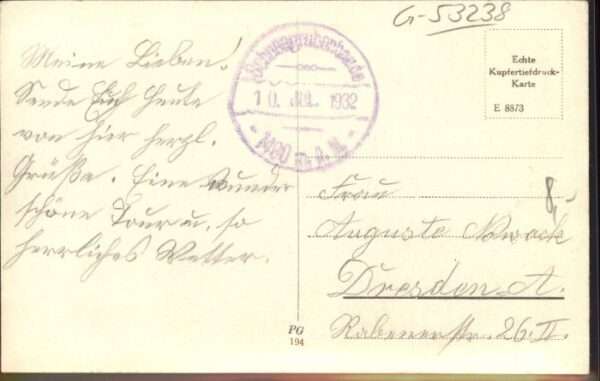 G-53238
Meine Lieben!
Sende Euch heute
von hier herzl.
Grüße. Eine wunder
schöne Tour u. so
herrliches Wetter.
Schneegrubenbaude
10. JUL. 1932
1490 m. ü. M.
Echte
Kupfertiefdruck-
Karte
E 8873
8,-
Frau
Auguste Noack
Dresden A.
Rabenerstr. 26. II.
PG
194